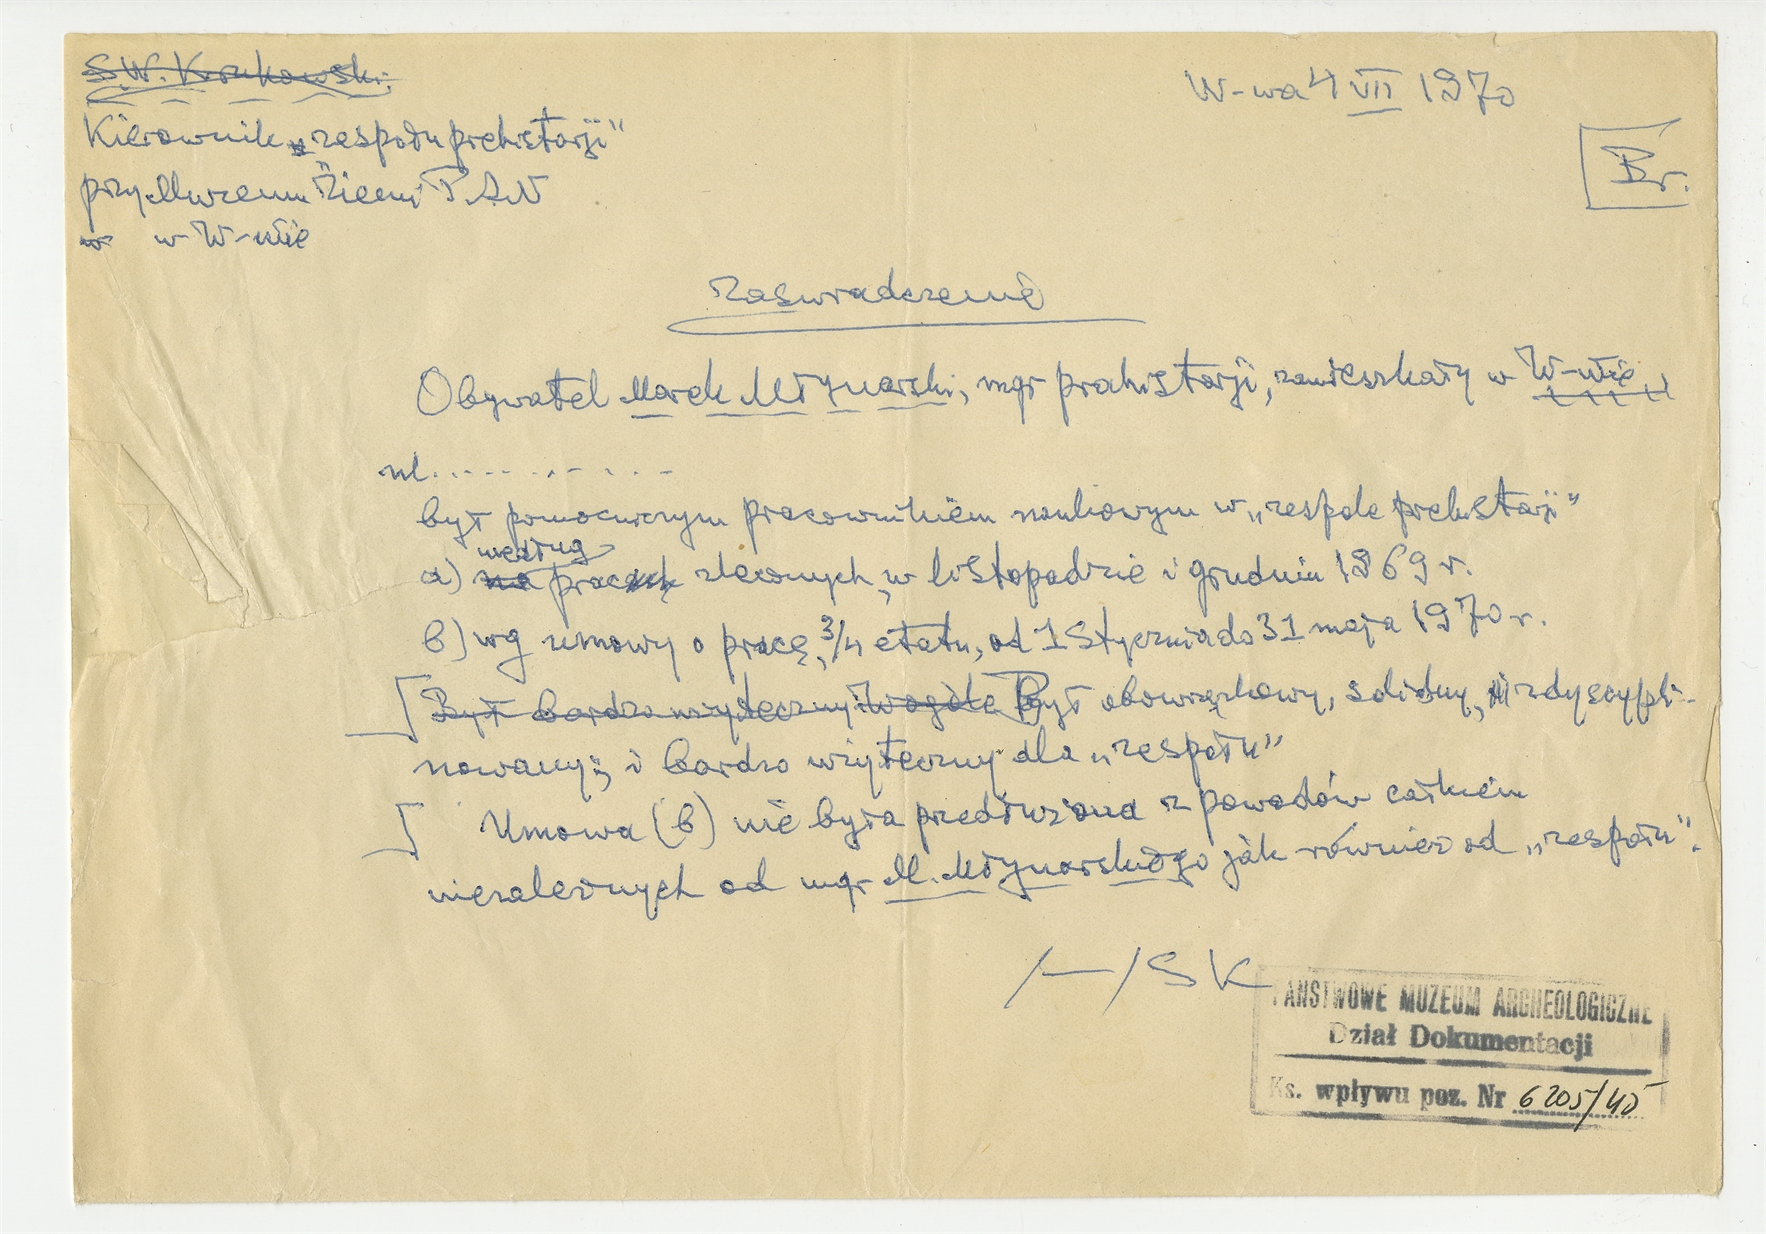 S.W. Krukowski
W-wa 4 VII 1970
Kierownik „zespołu prehistorji”
Br.
przy Muzeum Ziemi PAN
w W-wie
Zaświadczenie
Obywatel Marek Młynarski, mgr prahistorji, zamieszkały w W-wie
ul. . . . . . . . . . .
był pomocniczym pracownikiem naukowym w „zespole prehistorji”
według
a) na prac zleconych, w listopadzie i grudniu 1969 r.
b) wg umowy o pracę, 3/4 etatu, od 1 stycznia do 31 maja 1970 r.
Był bardzo użyteczny i wogóle Był obowiązkowy, solidny, zdyscypli-
nowany; i bardzo użyteczny dla „zespołu”
Umowa (b) nie była przedłużona z powodów całkiem
niezależnych od mgr M. Młynarskiego jak również od „zespołu”.
/—/ S K
PAŃSTWOWE MUZEUM ARCHEOLOGICZNE
Dział Dokumentacji
Ks. wpływu poz. Nr 6205/40